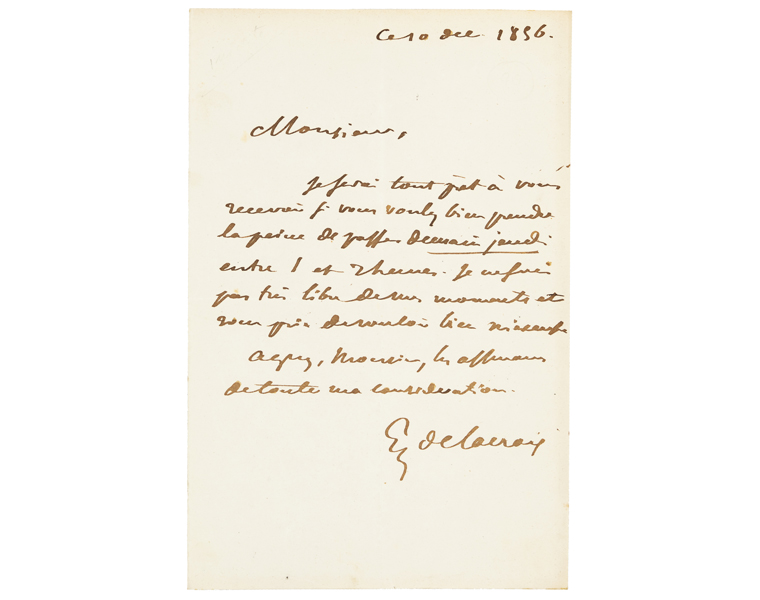 Ce 10 dec. 1856.
Monsieur,
Je serai tout prêt à vous
recevoir si vous voulez bien prendre
la peine de passer demain jeudi
entre 1 et 2 heures. Je ne suis
pas très libre de mes moments et
vous prie de vouloir bien m'excuser
Agréez, Monsieur, les assurances
de toute ma consideration.
Eg Delacroix